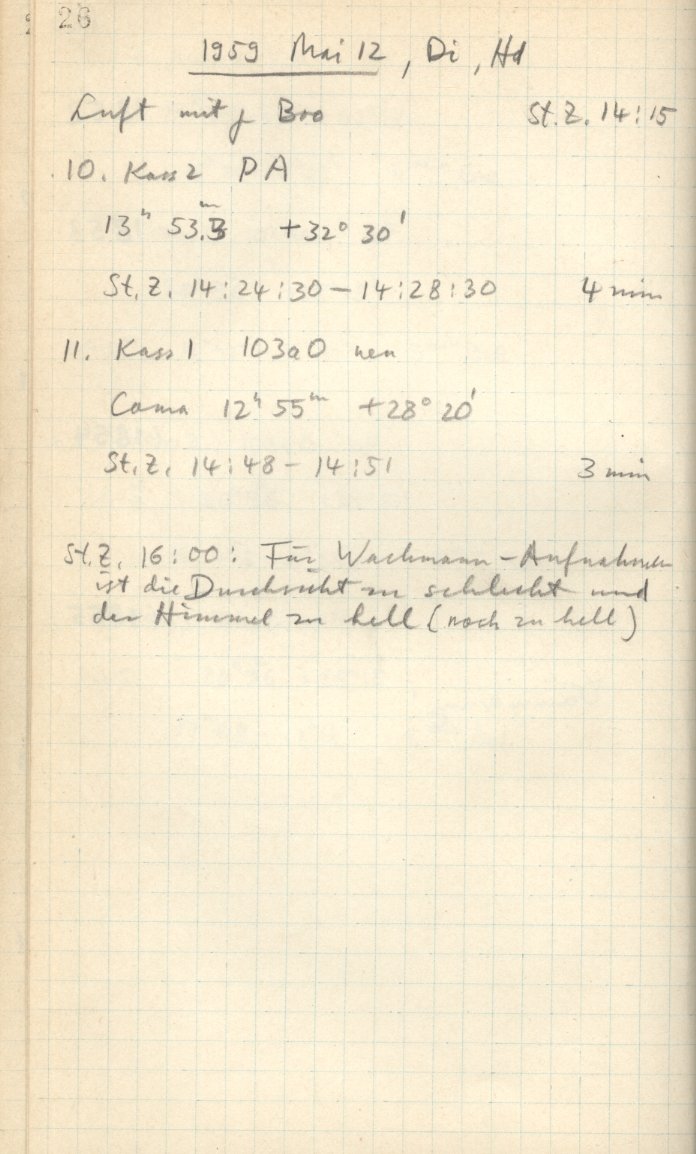 26
1959 Mai 12, Di, Hd
Luft mit γ Boo St.Z. 14:15
10. Kass 2 PA
13ʰ 53.3ᵐ +32° 30'
St.Z. 14:24:30 – 14:28:30 4 min
11. Kass 1 103aO neu
Coma 12ʰ 55ᵐ +28° 20'
St.Z. 14:48 – 14:51 3 min
St.Z. 16:00: Für Wachmann-Aufnahmen
ist die Durchsicht zu schlecht und
der Himmel zu hell (noch zu hell)